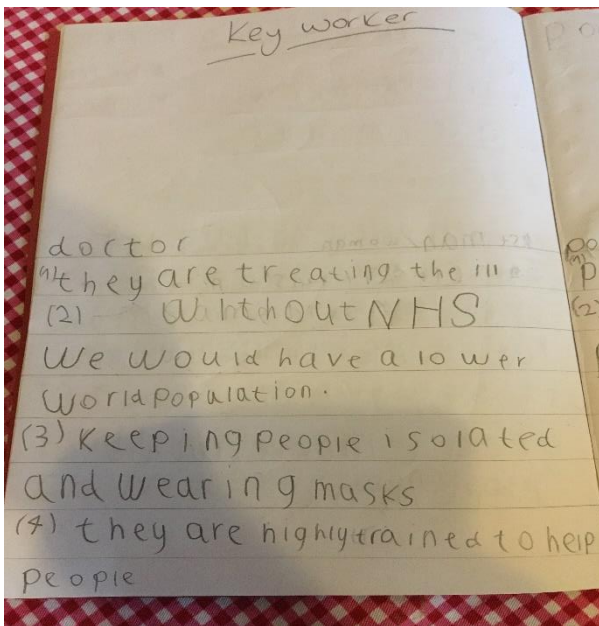 Key worker
doctor
(1) they are treating the ill
(2) Withtchout NHS
We would have a lower
world population.
(3) Keeping people isolated
and wearing masks
(4) they are highly trained to help
people